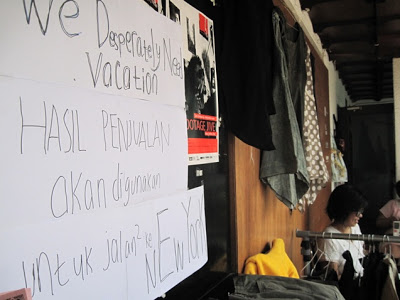 We
Desperately Need
Vacation
HASIL PENJUALAN
akan digunakan
untuk jalan2 ke
NEW York
OOTAGE FIVE